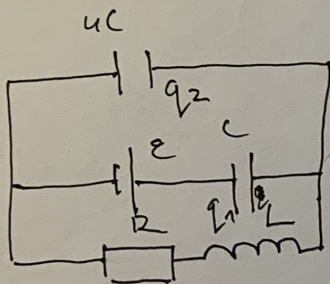 4C
q2
ε C
R q1 L